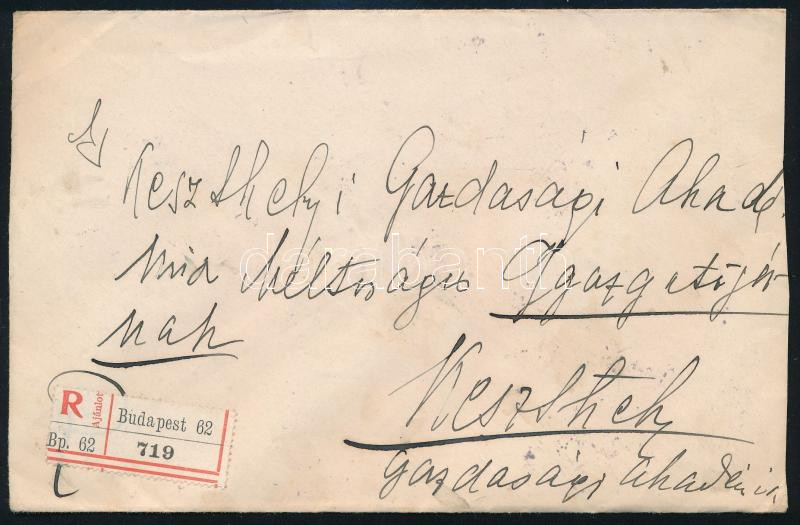 A
Keszthelyi Gazdasági Akadé
mia Méltóságos Igazgatójá
nak
Keszthely
Gazdasági Akadémia
R Ajánlott
Budapest 62
Bp. 62
719
darabanth